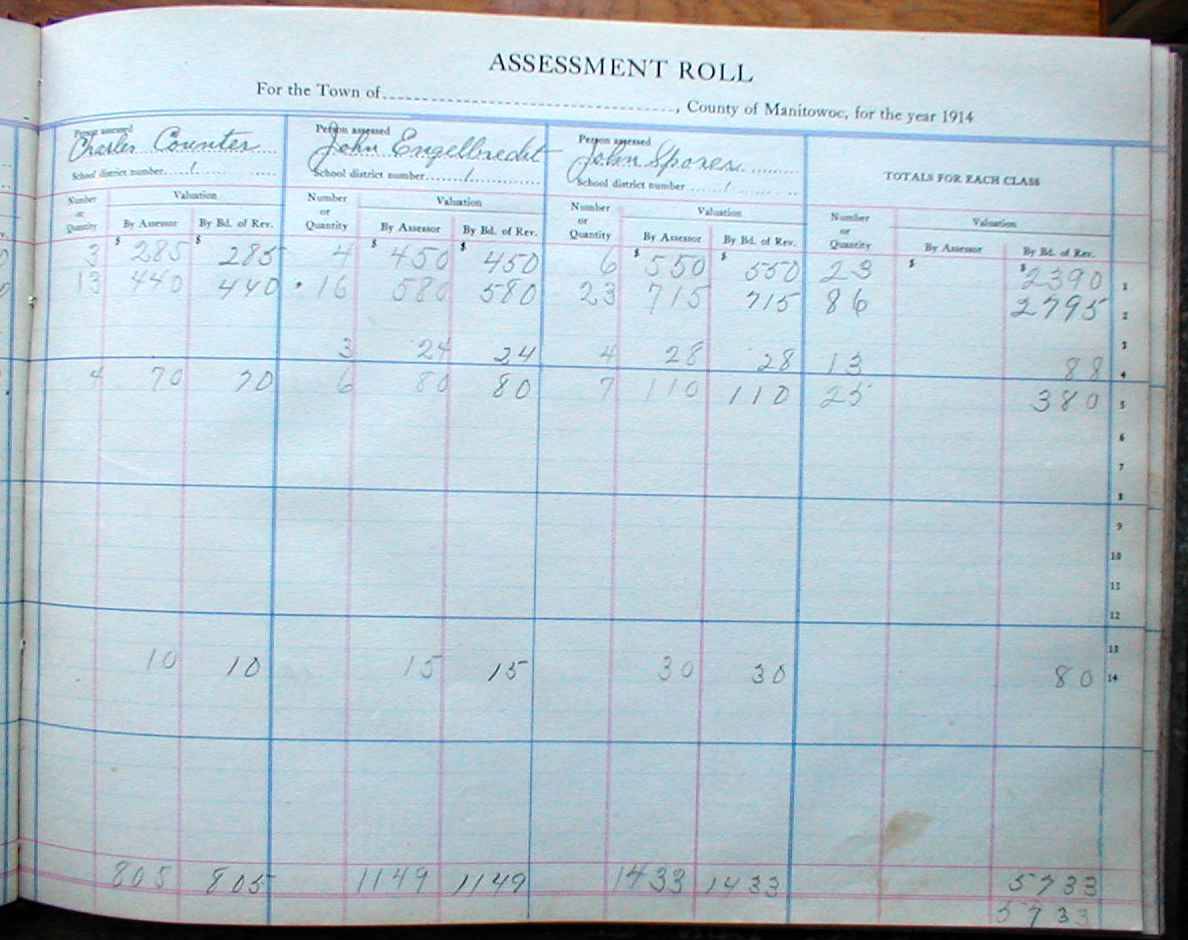 ASSESSMENT ROLL
For the Town of, County of Manitowoc, for the year 1914
Person assessed Person assessed Person assessed
Charles Counter John Engelbrecht John Spores TOTALS FOR EACH CLASS
School district number 1 School district number 1 School district number 1
Number or Quantity Valuation Number or Quantity Valuation Number or Quantity Valuation Number or Quantity Valuation
By Assessor By Bd. of Rev. By Assessor By Bd. of Rev. By Assessor By Bd. of Rev. By Assessor By Bd. of Rev.
3 $285 $285 4 $450 $450 6 $550 $550 23 $ $2390 1
13 440 440 16 580 580 23 715 715 86 2795 2
3
3 24 24 4 28 28 13 88 4
4 70 70 6 80 80 7 110 110 25 380 5
6
7
8
9
10
11
12
13
10 10 15 15 30 30 80 14
805 805 1149 1149 1433 1433 5733
5733